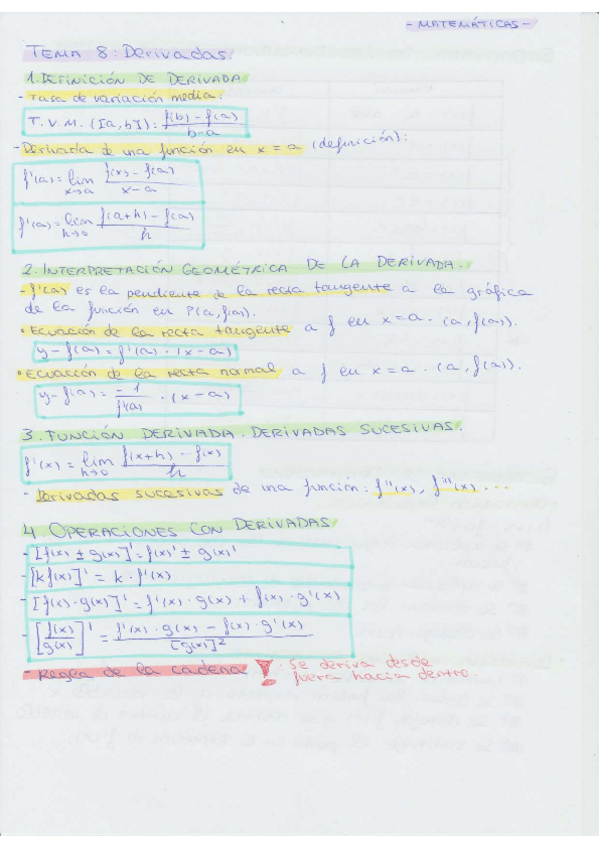 - MATEMÁTICAS -
TEMA 8: Derivadas.
1. DEFINICIÓN DE DERIVADA
- Tasa de variación media:
T.V.M. ([a,b]): f(b) - f(a) / b-a
- Derivada de una función en x = a (definición):
f'(a) = lim x→a f(x) - f(a) / x - a
f'(a) = lim h→0 f(a+h) - f(a) / h
2. INTERPRETACIÓN GEOMÉTRICA DE LA DERIVADA.
- f'(a) es la pendiente de la recta tangente a la gráfica
de la función en P(a, f(a)).
• Ecuación de la recta tangente a f en x = a. (a, f(a)).
y - f(a) = f'(a) · (x - a)
• Ecuación de la recta normal a f en x = a. (a, f(a)).
y - f(a) = -1 / f'(a) · (x - a)
3. FUNCIÓN DERIVADA. DERIVADAS SUCESIVAS.
f'(x) = lim h→0 f(x+h) - f(x) / h
- Derivadas sucesivas de una función: f''(x), f'''(x) ...
4. OPERACIONES CON DERIVADAS
- [f(x) ± g(x)]' = f(x)' ± g(x)'
- [k f(x)]' = k · f'(x)
- [f(x) · g(x)]' = f'(x) · g(x) + f(x) · g'(x)
- [f(x) / g(x)]' = f'(x) · g(x) - f(x) · g'(x) / [g(x)]²
- Regla de la cadena ! : Se deriva desde
fuera hacia dentro.